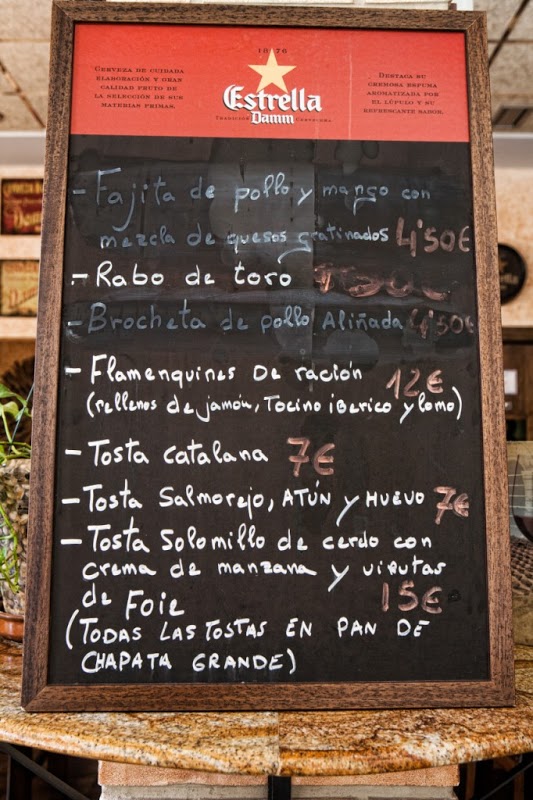 1876
CERVEZA DE CUIDADA
ELABORACIÓN Y GRAN
CALIDAD FRUTO DE
LA SELECCIÓN DE SUS
MATERIAS PRIMAS.
Estrella
Damm
TRADICIÓN CERVECERA
DESTACA SU
CREMOSA ESPUMA
AROMATIZADA POR
EL LÚPULO Y SU
REFRESCANTE SABOR.
- Fajita de pollo y mango con
mezcla de quesos gratinados 4'50€
- Rabo de toro
- Brocheta de pollo Aliñada 4'50€
- Flamenquines De ración 12€
(rellenos de jamón, Tocino iberico y lomo)
- Tosta Catalana 7€
- Tosta Salmorejo, ATÚN y HUEVO 7€
- Tosta Solomillo de cerdo con
crema de manzana y virutas
de FOIE 15€
(TODAS LAS TOSTAS EN PAN DE
CHAPATA GRANDE)